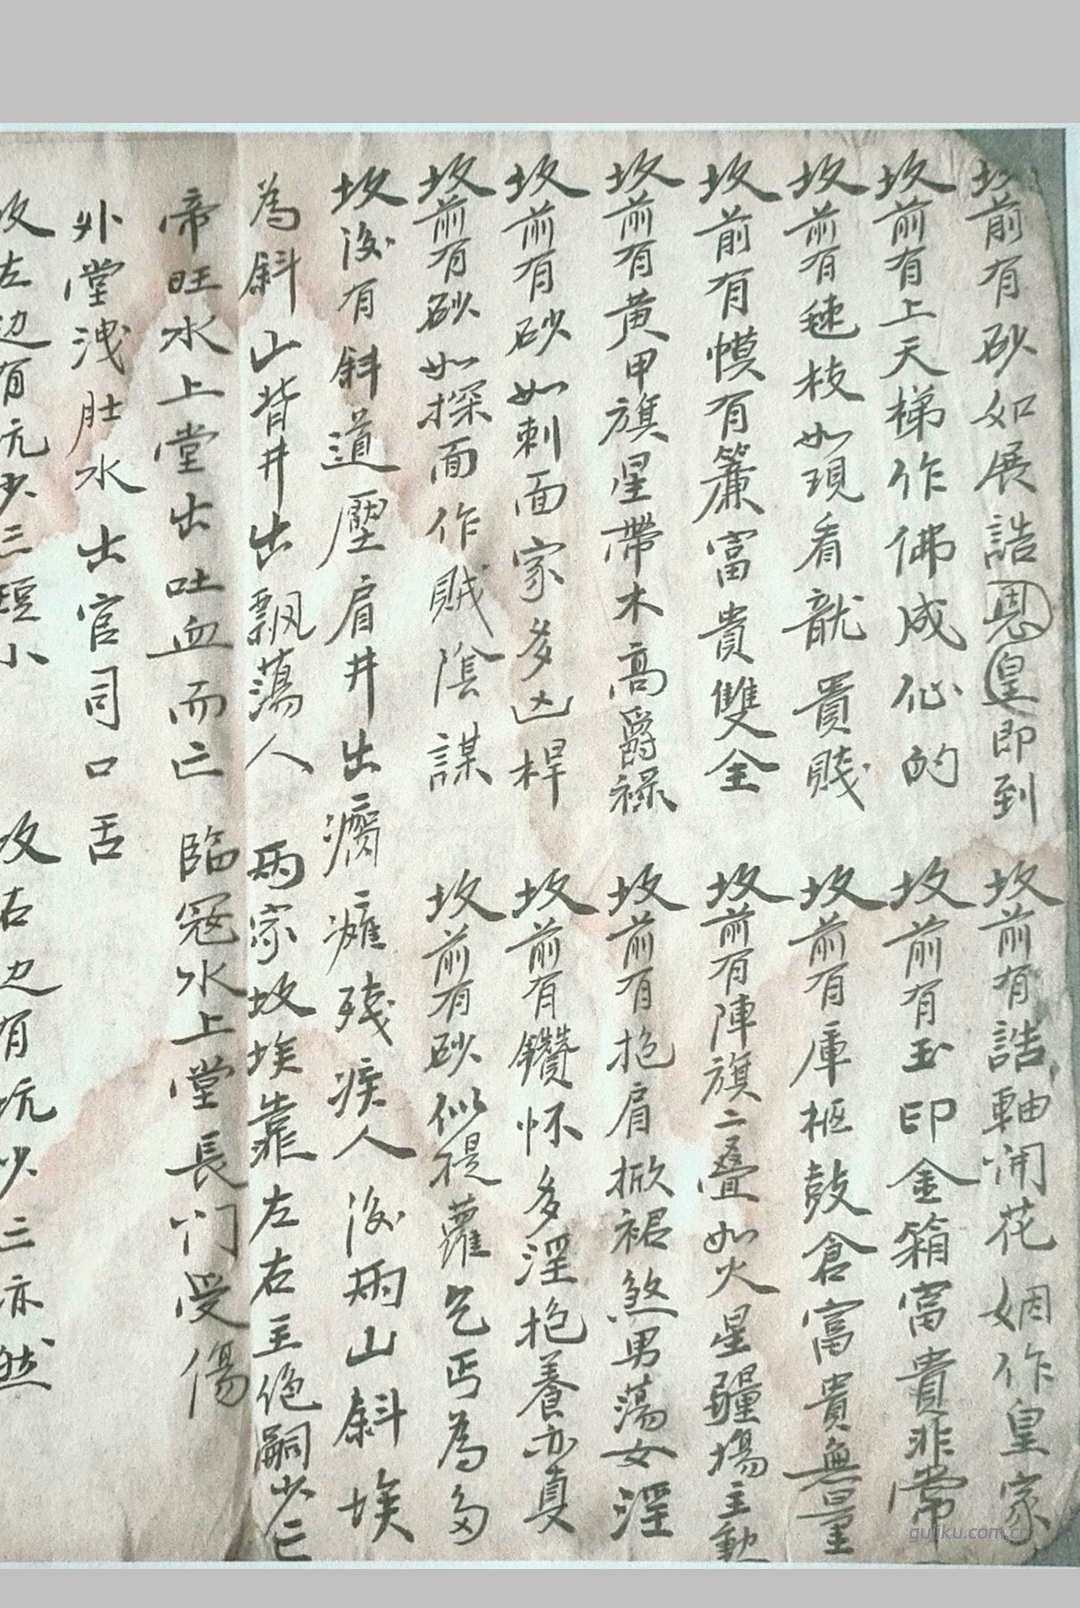 坟前有砂如展誥恩皇即到
坟前有誥軸開花姻作皇家
坟前有上天梯作佛成仏的
坟前有玉印金箱富貴非常
坟前有毽枝如現看龍貴賤
坟前有庫柜鼓倉富貴無量
坟前有幙有簾富貴雙全
坟前有陣旗二叠如火星疆場主動
坟前有黄甲旗星帶木高爵禄
坟前有抱肩掀裙煞男荡女淫
坟前有砂如刺面家多凶桿
坟前有鑽怀多淫抱養亦真
坟前有砂如探面作賊陰謀
坟前有砂似提蘿乞丐為多
坟後有斜道壓肩井出癘癱殘疾人後兩山斜埃
為斜山背井出飄蕩人
兩家坟埃靠左右主绝嗣少亡
帝旺水上堂出吐血而亡
臨冠水上堂長门受傷
外堂洩肚水出官司口舌
坟左边有坑少三短小
坟右边有坑少三亦然
guijku.com.cn